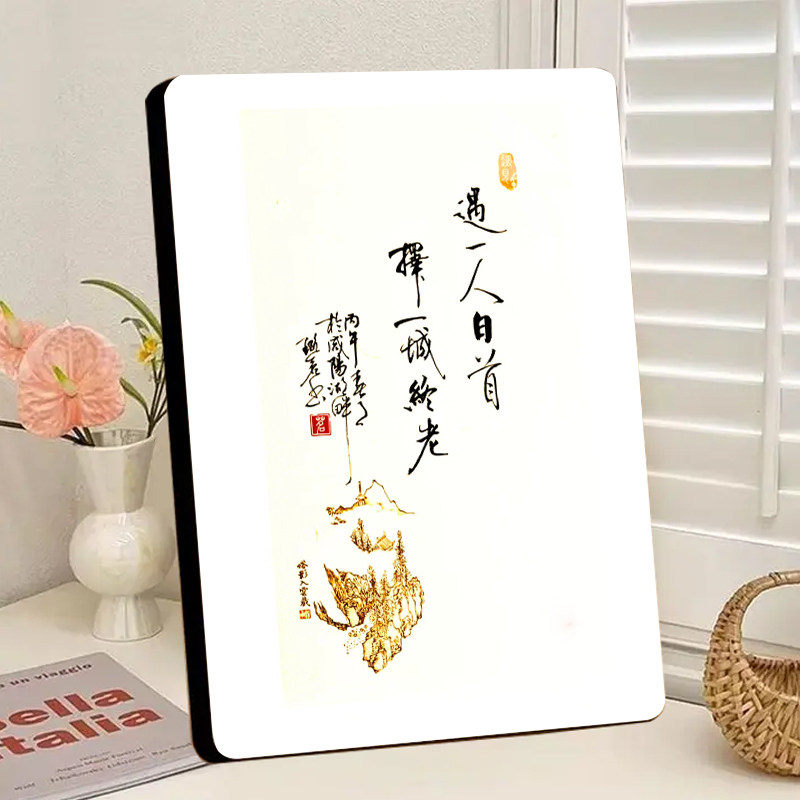 遇一人白首
擇一城終老
丙午春月
於咸陽湖畔
茗
un viaggio
Bella
Italia